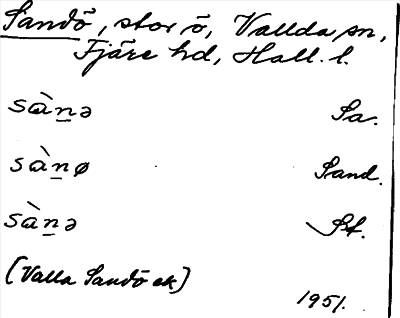 Sandö, stor ö, Vallda sn,
Fjäre hd, Hall. l.
sàn̲ə Sa.
sàn̲ø Sand.
sàn̲ə St.
(Valla Sandö ek)
1951.